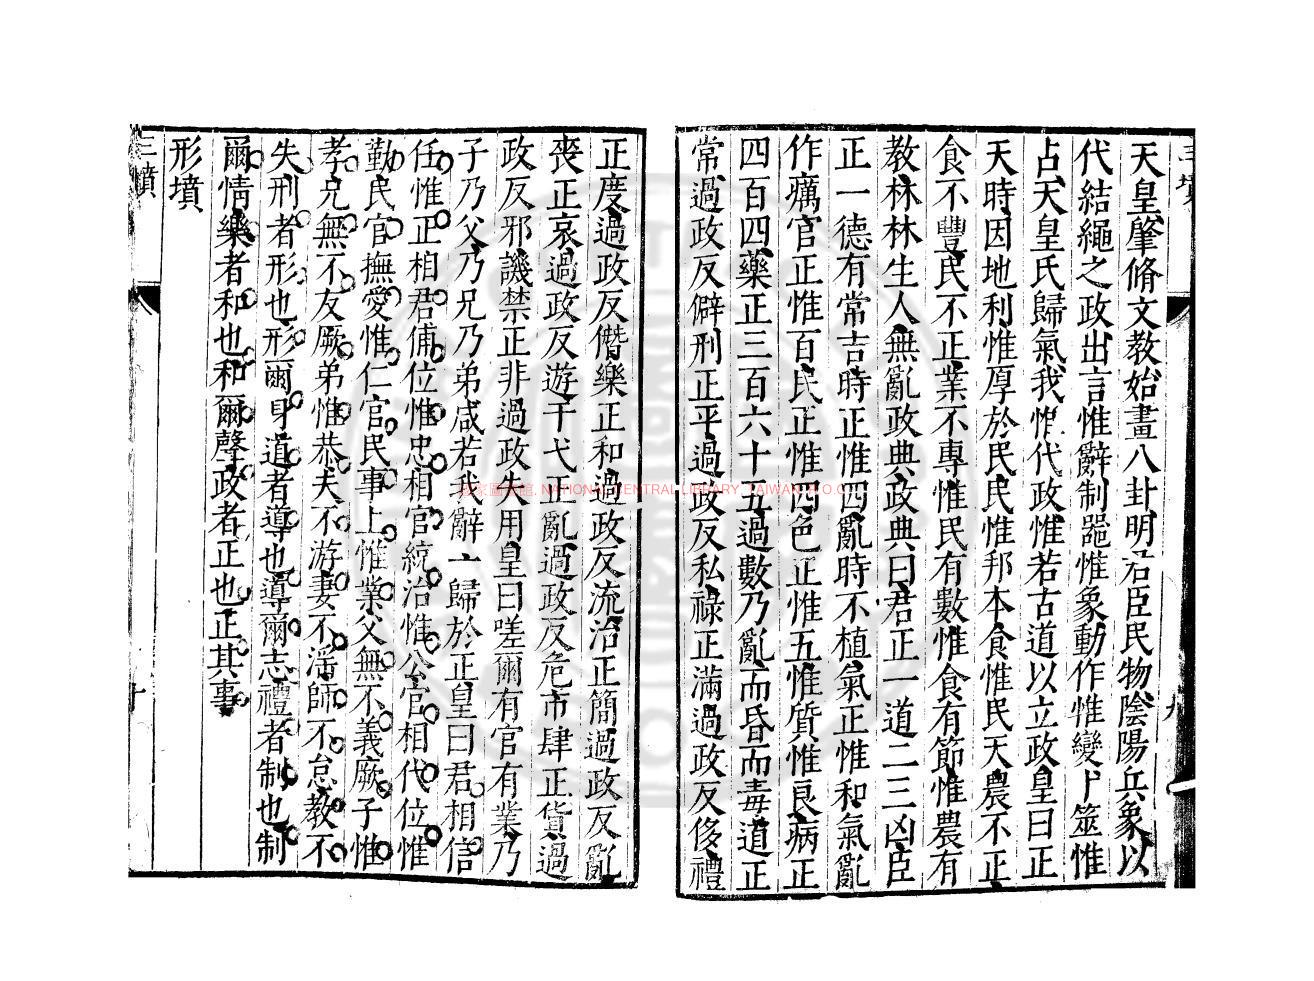 天皇肇脩文教始畫八卦明君臣民物陰陽兵象以
代結繩之政出言惟辭制噐惟象動作惟變卜筮惟
占天皇氏歸氣我惟代政惟若古道以立政皇曰正
天時因地利惟厚於民民惟邦本食惟民天農不正
食不豐民不正業不專惟民有數惟食有節惟農有
教林林生人無亂政典政典曰君正一道二三凶臣
正一德有常吉時正惟四亂時不植氣正惟和氣亂
作癘官正惟百民正惟四色正惟五惟質惟良病正
四百四藥正三百六十五過數乃亂而昏而毒道正
常過政反僻刑正平過政反私祿正滿過政反侈禮
正度過政反僭樂正和過政反流治正簡過政反亂
喪正哀過政反遊干戈正亂過政反危市肆正貨過
政反邪譏禁正非過政失用皇曰嗟爾有官有業乃
子乃父乃兄乃弟咸若我辭一歸於正皇曰君相信
任惟正相君俌位惟忠相官統治惟公官相代位惟
勤民官撫愛惟仁官民事上惟業父無不義厥子惟
孝兄無不友厥弟惟恭夫不游妻不淫師不怠教不
失刑者形也形爾身道者導也導爾志禮者制也制
爾情樂者和也和爾聲政者正也正其事
形墳
三墳
十
三墳
九
國家圖書館 NATIONAL CENTRAL LIBRARY, TAIWAN, R.O.C